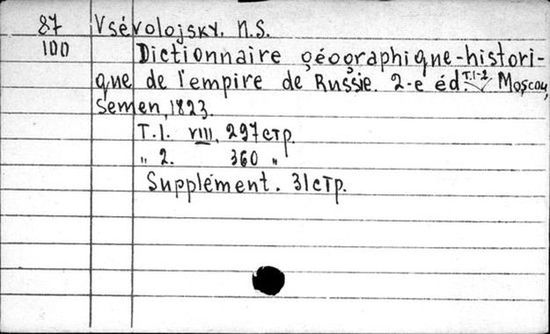 87 Vsévolojsky. N.S.
100 Dictionnaire géographique-histori-
que de l'empire de Russie. 2-e éd. T.1-2 Moscou,
Semen, 1823.
T.1. VIII, 297стр.
„ 2. 360 „
Supplément. 31стр.